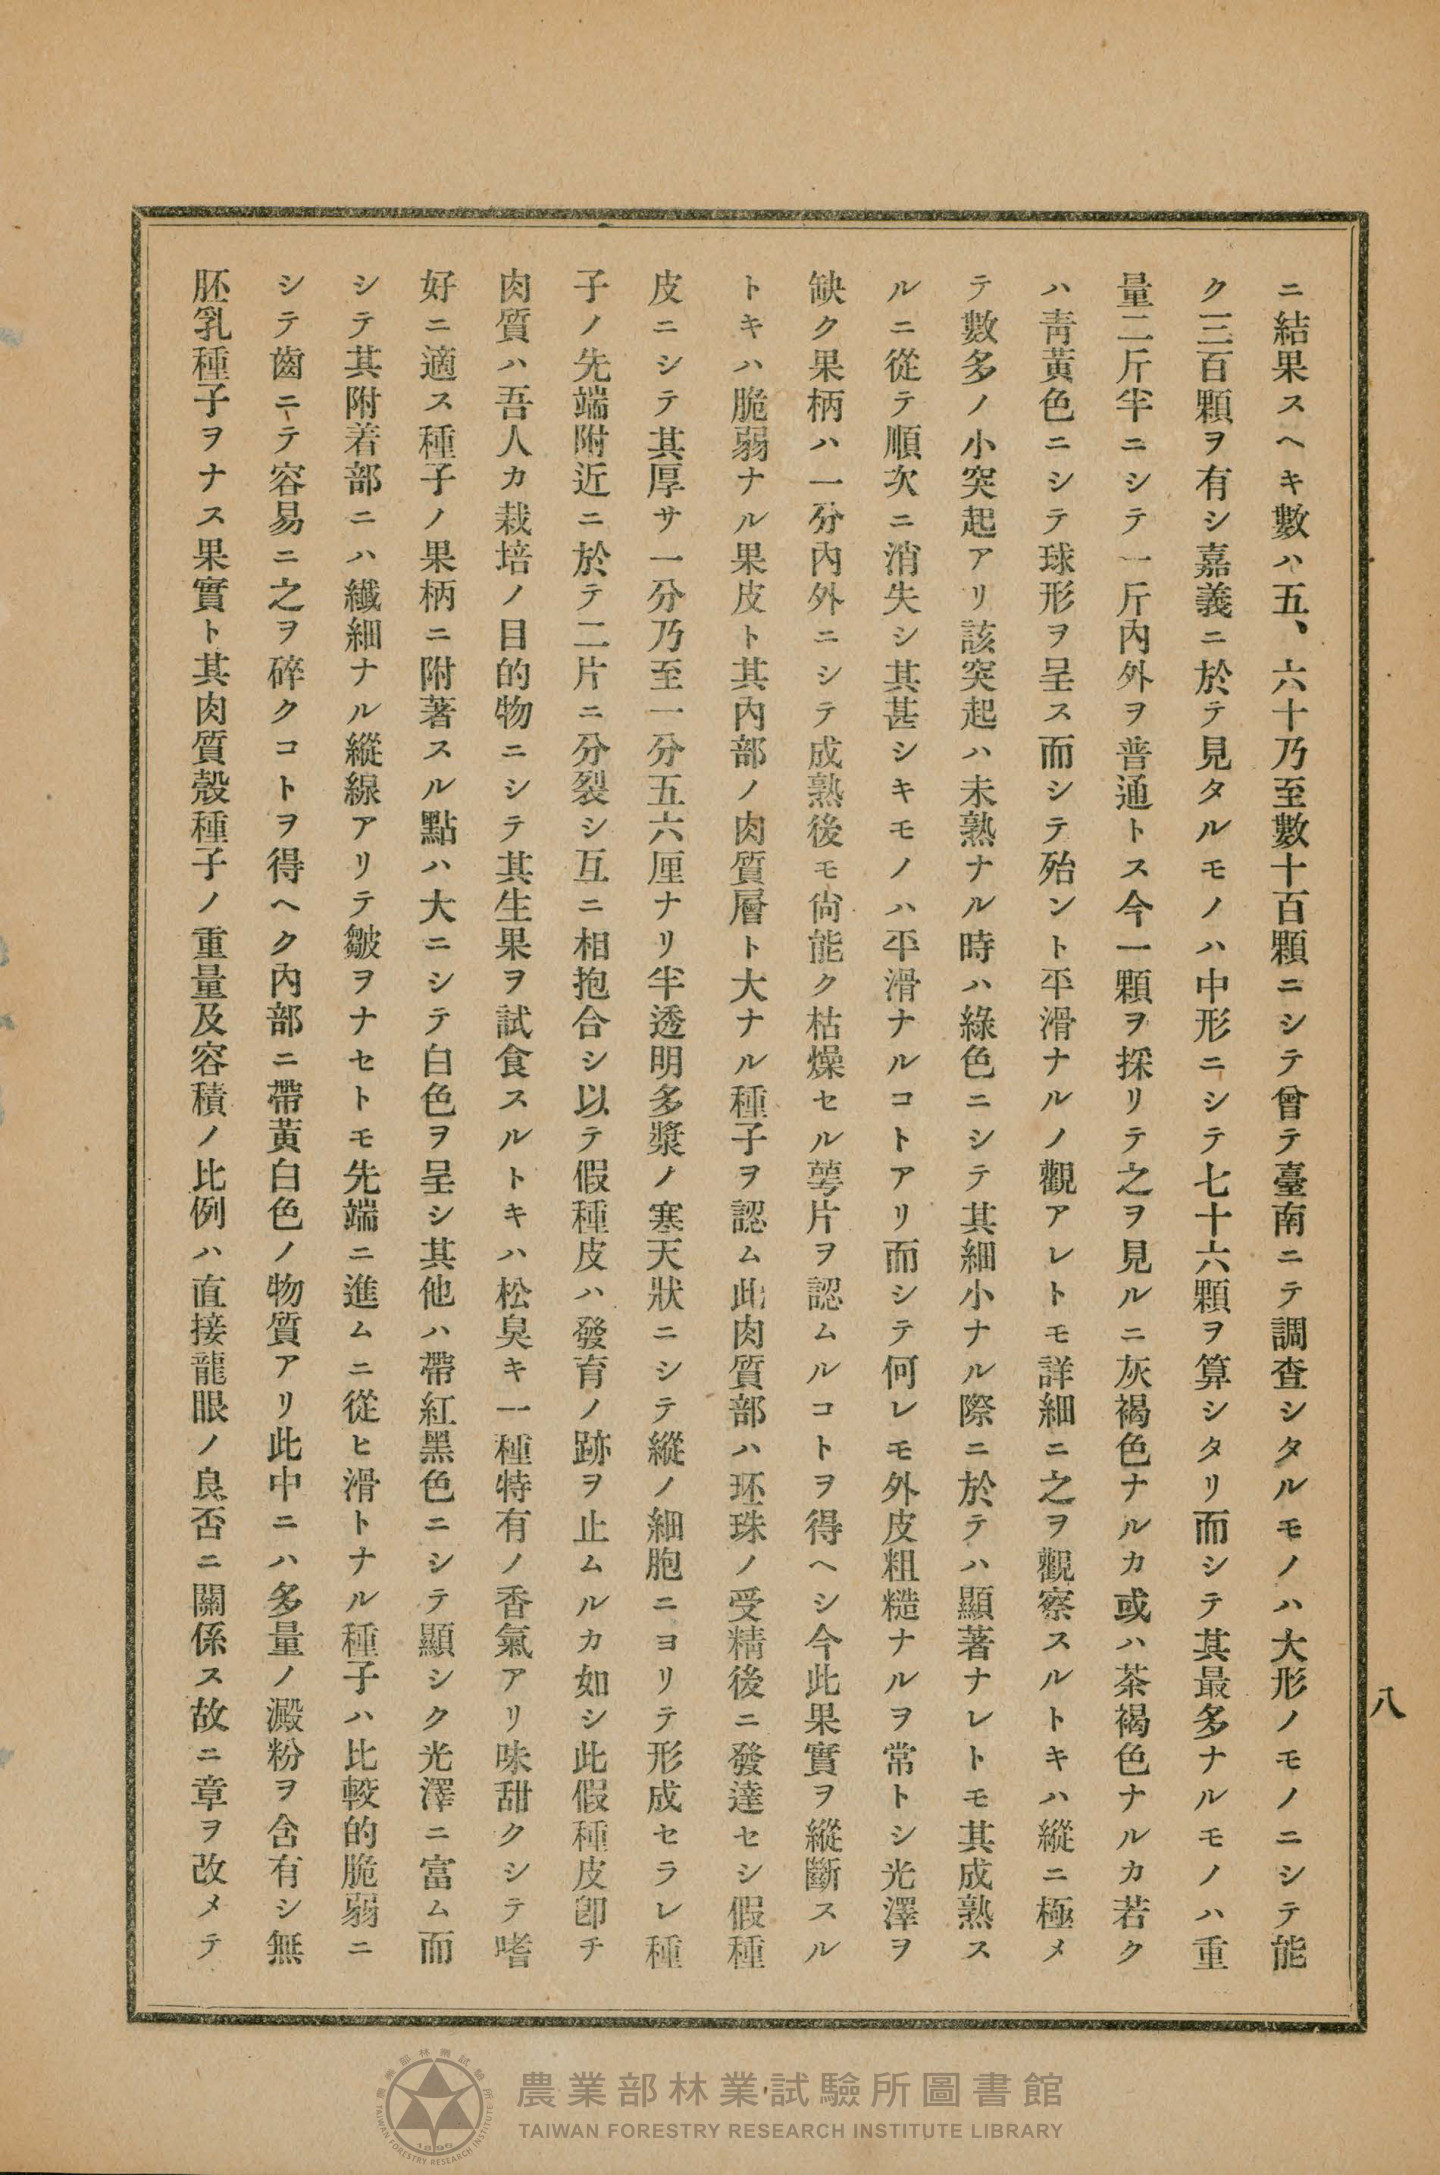 ニ結果スヘキ數ハ五、六十乃至數十百顆ニシテ曾テ臺南ニテ調査シタルモノハ大形ノモノニシテ能
ク三百顆ヲ有シ嘉義ニ於テ見タルモノハ中形ニシテ七十六顆ヲ算シタリ而シテ其最多ナルモノハ重
量二斤半ニシテ一斤內外ヲ普通トス今一顆ヲ採リテ之ヲ見ルニ灰褐色ナルカ或ハ茶褐色ナルカ若ク
ハ靑黃色ニシテ球形ヲ呈ス而シテ殆ント平滑ナルノ觀アレトモ詳細ニ之ヲ觀察スルトキハ縱ニ極メ
テ數多ノ小突起アリ該突起ハ未熟ナル時ハ綠色ニシテ其細小ナル際ニ於テハ顯著ナレトモ其成熟ス
ルニ從テ順次ニ消失シ其甚シキモノハ平滑ナルコトアリ而シテ何レモ外皮粗糙ナルヲ常トシ光澤ヲ
缺ク果柄ハ一分內外ニシテ成熟後モ尙能ク枯燥セル萼片ヲ認ムルコトヲ得ヘシ今此果實ヲ縱斷スル
トキハ脆弱ナル果皮ト其內部ノ肉質層ト大ナル種子ヲ認ム此肉質部ハ珠ノ受精後ニ發達セシ假種
皮ニシテ其厚サ一分乃至一分五六厘ナリ半透明多漿ノ寒天狀ニシテ縱ノ細胞ニヨリテ形成セラレ種
子ノ先端附近ニ於テ二片ニ分裂シ互ニ相抱合シ以テ假種皮ハ發育ノ跡ヲ止ムルカ如シ此假種皮卽チ
肉質ハ吾人カ栽培ノ目的物ニシテ其生果ヲ試食スルトキハ松臭キ一種特有ノ香氣アリ味甜クシテ嗜
好ニ適ス種子ノ果柄ニ附著スル點ハ大ニシテ白色ヲ呈シ其他ハ帶紅黑色ニシテ顯シク光澤ニ富ム而
シテ其附着部ニハ纖細ナル縱線アリテ皺ヲナセトモ先端ニ進ムニ從ヒ滑トナル種子ハ比較的脆弱ニ
シテ齒ニテ容易ニ之ヲ碎クコトヲ得ヘク內部ニ帶黃白色ノ物質アリ此中ニハ多量ノ澱粉ヲ含有シ無
胚乳種子ヲナス果實ト其肉質殼種子ノ重量及容積ノ比例ハ直接龍眼ノ良否ニ關係ス故ニ章ヲ改メテ
八
農業部林業試驗所圖書館
TAIWAN FORESTRY RESEARCH INSTITUTE LIBRARY
農業部林業試驗所
TAIWAN FORESTRY RESEARCH INSTITUTE
1895